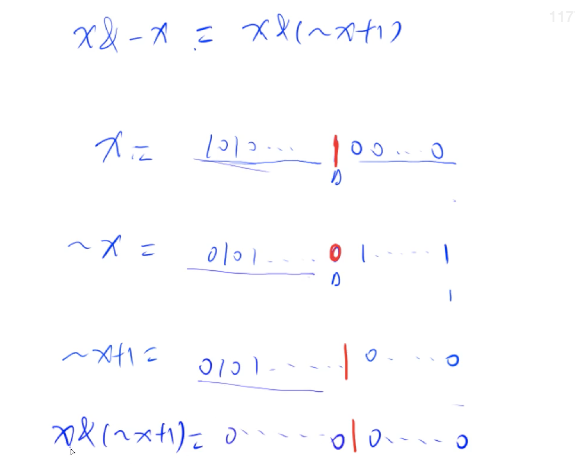 117
x&-x = x&(~x+1)
x= 1010... 1 00...0
~x = 0101.... 0 1.....1
1
~x+1= 0101.....1 0....0
x&(~x+1)= 0.....0 1 0....0